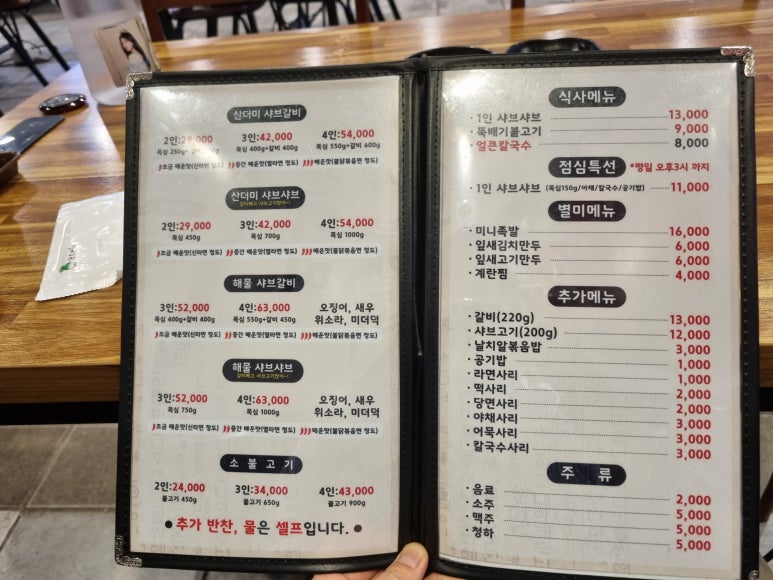 산더미 샤브갈비
2인:29,000 3인:42,000 4인:54,000
목심 250g+갈비 목심 400g+갈비 400g 목심 550g+갈비 600g
조금 매운맛(신라면 정도) 중간 매운맛(열라면 정도) 매운맛(불닭볶음면 정도)
산더미 샤브샤브
갈비빼고 샤브고기많이~!
2인:29,000 3인:42,000 4인:54,000
목심 450g 목심 700g 목심 1000g
조금 매운맛(신라면 정도) 중간 매운맛(열라면 정도) 매운맛(불닭볶음면 정도)
해물 샤브갈비
3인:52,000 4인:63,000 오징어, 새우
목심 400g+갈비 400g 목심 550g+갈비 450g 위소라, 미더덕
조금 매운맛(신라면 정도) 중간 매운맛(열라면 정도) 매운맛(불닭볶음면 정도)
해물 샤브샤브
갈비빼고 샤브고기많이~!
3인:52,000 4인:63,000 오징어, 새우
목심 750g 목심 1000g 위소라, 미더덕
조금 매운맛(신라면 정도) 중간 매운맛(열라면 정도) 매운맛(불닭볶음면 정도)
소 불 고 기
2인:24,000 3인:34,000 4인:43,000
불고기 450g 불고기 650g 불고기 900g
● 추가 반찬, 물은 셀프입니다. ●
식사메뉴
· 1인 샤브샤브 13,000
· 뚝배기불고기 9,000
· 얼큰칼국수 8,000
점심특선 *평일 오후3시 까지
· 1인 샤브샤브 (목심150g/야채/칼국수/공기밥) 11,000
별미메뉴
· 미니족발 16,000
· 잎새김치만두 6,000
· 잎새고기만두 6,000
· 계란찜 4,000
추가메뉴
· 갈비(220g) 13,000
· 샤브고기(200g) 12,000
· 날치알볶음밥 3,000
· 공기밥 1,000
· 라면사리 1,000
· 떡사리 2,000
· 당면사리 2,000
· 야채사리 3,000
· 어묵사리 3,000
· 칼국수사리 3,000
주 류
· 음료 2,000
· 소주 5,000
· 맥주 5,000
· 청하 5,000